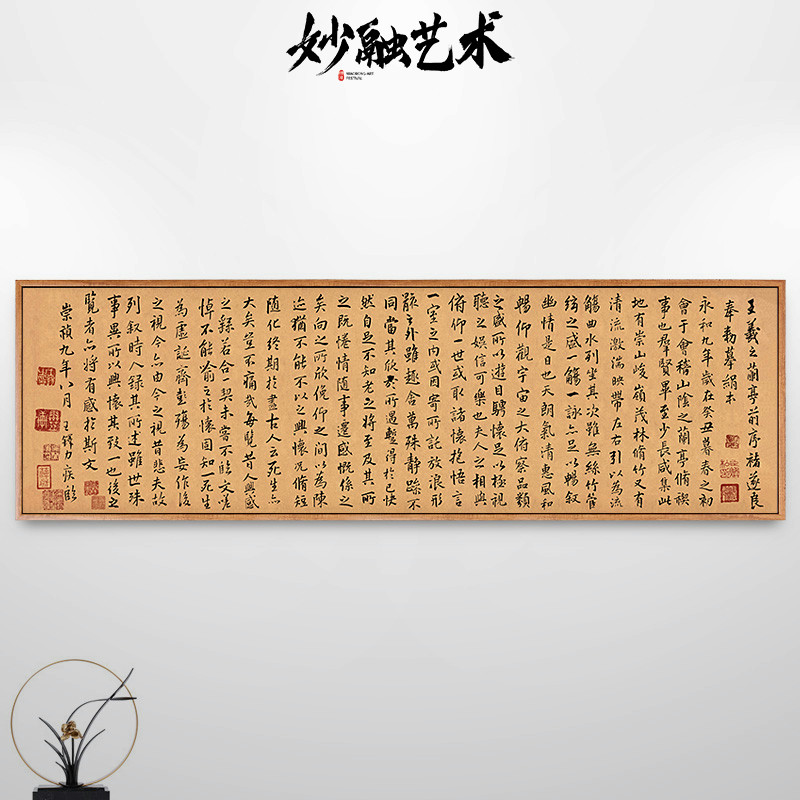 妙融艺术
MIAORONG ART
FESTIVAL
王羲之蘭亭前序褚遂良
奉勅摹絹本
永和九年歲在癸丑暮春之初
會于會稽山陰之蘭亭脩禊
事也羣賢畢至少長咸集此
地有崇山峻嶺茂林脩竹又有
清流激湍映帶左右引以為流
觴曲水列坐其次雖無絲竹管
絃之盛一觴一詠亦足以暢叙
幽情是日也天朗氣清惠風和
暢仰觀宇宙之大俯察品類
之盛所以遊目騁懷足以極視
聽之娛信可樂也夫人之相與
俯仰一世或取諸懷抱悟言
一室之內或因寄所託放浪形
骸之外雖趣舍萬殊靜躁不
同當其欣於所遇暫得於己快
然自足不知老之將至及其所
之既惓情隨事遷感慨係之
矣向之所欣俛仰之間以為陳
迹猶不能不以之興懷況脩短
隨化終期於盡古人云死生亦
大矣豈不痛哉每覽昔人興感
之繇若合一契未嘗不臨文嗟
悼不能喻之於懷固知死生
為虛誕齊彭殤為妄作後
之視今亦由今之視昔悲夫故
列叙時人錄其所述雖世殊
事異所以興懷其致一也後之
覽者亦將有感於斯文
崇禎九年八月 王鐸力疾臨